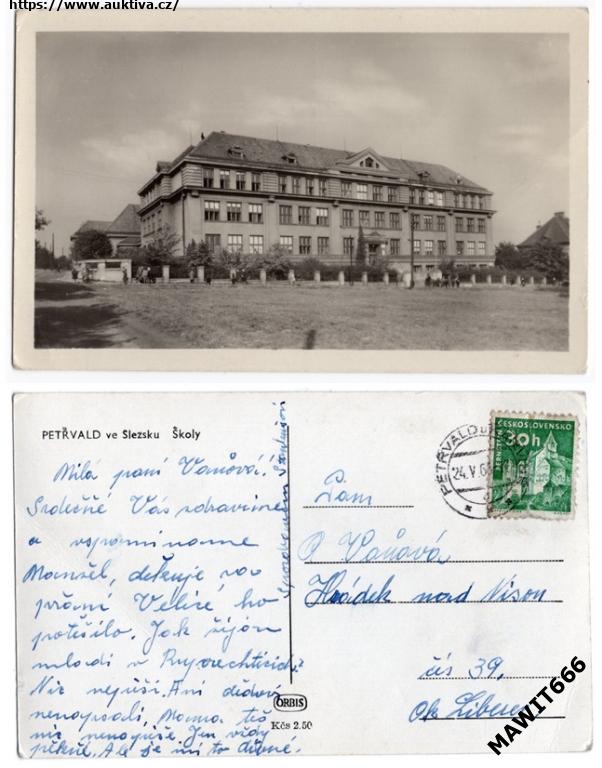 https://www.auktiva.cz/
PETŘVALD ve Slezsku Školy
Milá paní Vaňová.
Srdečně Vás zdravíme
a vzpomínáme
Manžel, děkuje za
přání Velice ho
potěšilo. Jak žijou
mladí v Ruprechticích?
Nic nepíší. Ani dědovi
nenapsali, Mamma též
nic nenapíše Jen vždy
pěkně. Ale je mi to divné.
Pozdravem
ORBIS
Kčs 2.50
PETŘVALD U
24.V.6
ČESKOSLOVENSKO
30h
PERNŠTEJN
Paní
Vaňová
Hrádek nad Nisou
čís 39.
Ok Liberec
MAWIT666